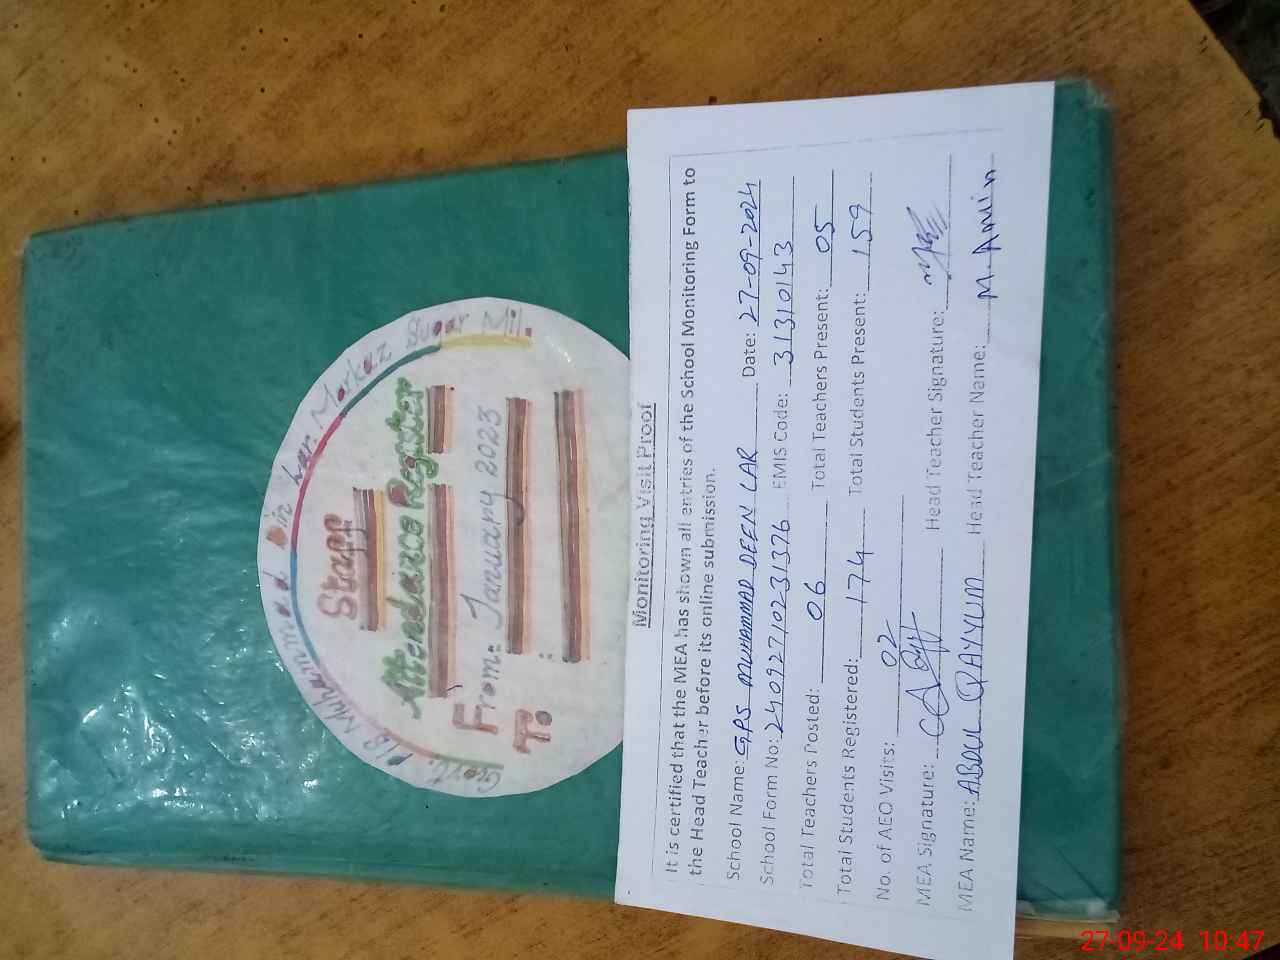 Govt. P/S Muhammad Din Lar. Markaz, Sugar Mil.
Staff
Attendance Register
From:- January 2023
To :
Monitoring Visit Proof
It is certified that the MEA has shown all entries of the School Monitoring Form to
the Head Teacher before its online submission.
School Name: GPS MUHAMMAD DEEN LAR Date: 27-09-2024
School Form No: 24092710231376 EMIS Code: 31310143
Total Teachers Posted: 06 Total Teachers Present: 05
Total Students Registered: 174 Total Students Present: 159
No. of AEO Visits: 02
MEA Signature: Head Teacher Signature:
MEA Name: ABDUL QAYYUM Head Teacher Name: M. Amin
27-09-24 10:47